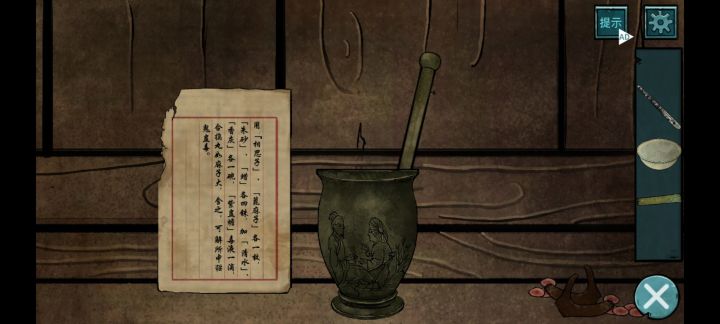 提示
AD
用「相思子」、「蓖麻子」各一枚,
「朱砂」、「蜡」各四铢,加「清水」、
「香灰」各一碗,毒液一滴
合捣丸如麻子大,含之,可解所中猫
鬼蛊毒。